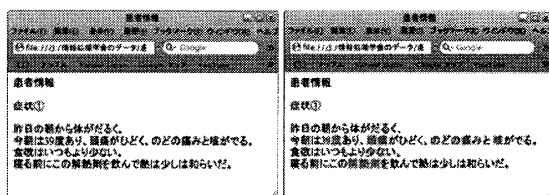 患者情報
ファイル(F) 編集(E) 表示(V) 履歴(S) ブックマーク(B) ウィンドウ(W) ヘルプ
file:///d:/情報処理学会のデータ/患
Google
患者情報
症状①
昨日の朝から体がだるく、
今朝は39度あり、頭痛がひどく、のどの痛みと咳がでる。
食欲はいつもより少ない。
寝る前にこの解熱剤を飲んで熱は少しは和らいだ。
患者情報
ファイル(F) 編集(E) 表示(V) 履歴(S) ブックマーク(B) ウィンドウ(W) ヘルプ
file:///d:/情報処理学会のデータ/患
Google
患者情報
症状①
昨日の朝から体がだるく、
今朝は39度あり、頭痛がひどく、のどの痛みと咳がでる。
食欲はいつもより少ない。
寝る前にこの解熱剤を飲んで熱は少しは和らいだ。